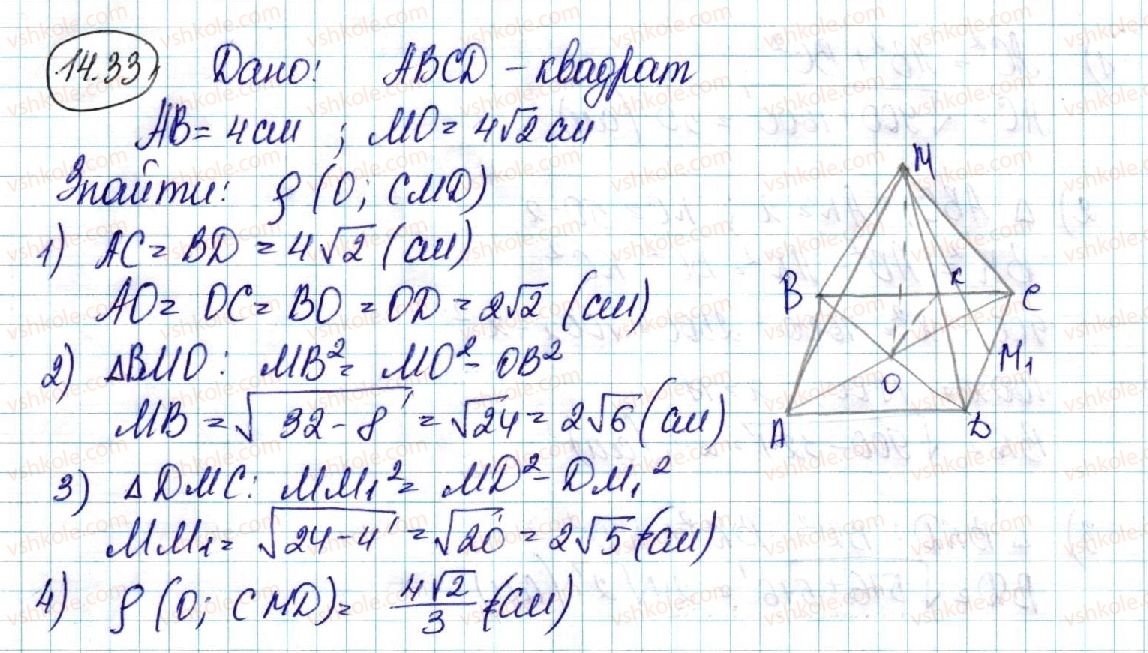 14.33 Дано: ABCD - квадрат
AB = 4 см ; MO = 4√2 см
Знайти: ρ (O; CMD)
1) AC = BD = 4√2 (см)
AO = OC = BO = OD = 2√2 (см)
2) ΔBMO: MB² = MO² - OB²
MB = √32 - 8 = √24 = 2√6 (см)
3) ΔDMC: MM₁² = MD² - DM₁²
MM₁ = √24 - 4 = √20 = 2√5 (см)
4) ρ (O; CMD) = 4√2/3 (см)
M
B K C
M₁
O
A D
vshkole.com